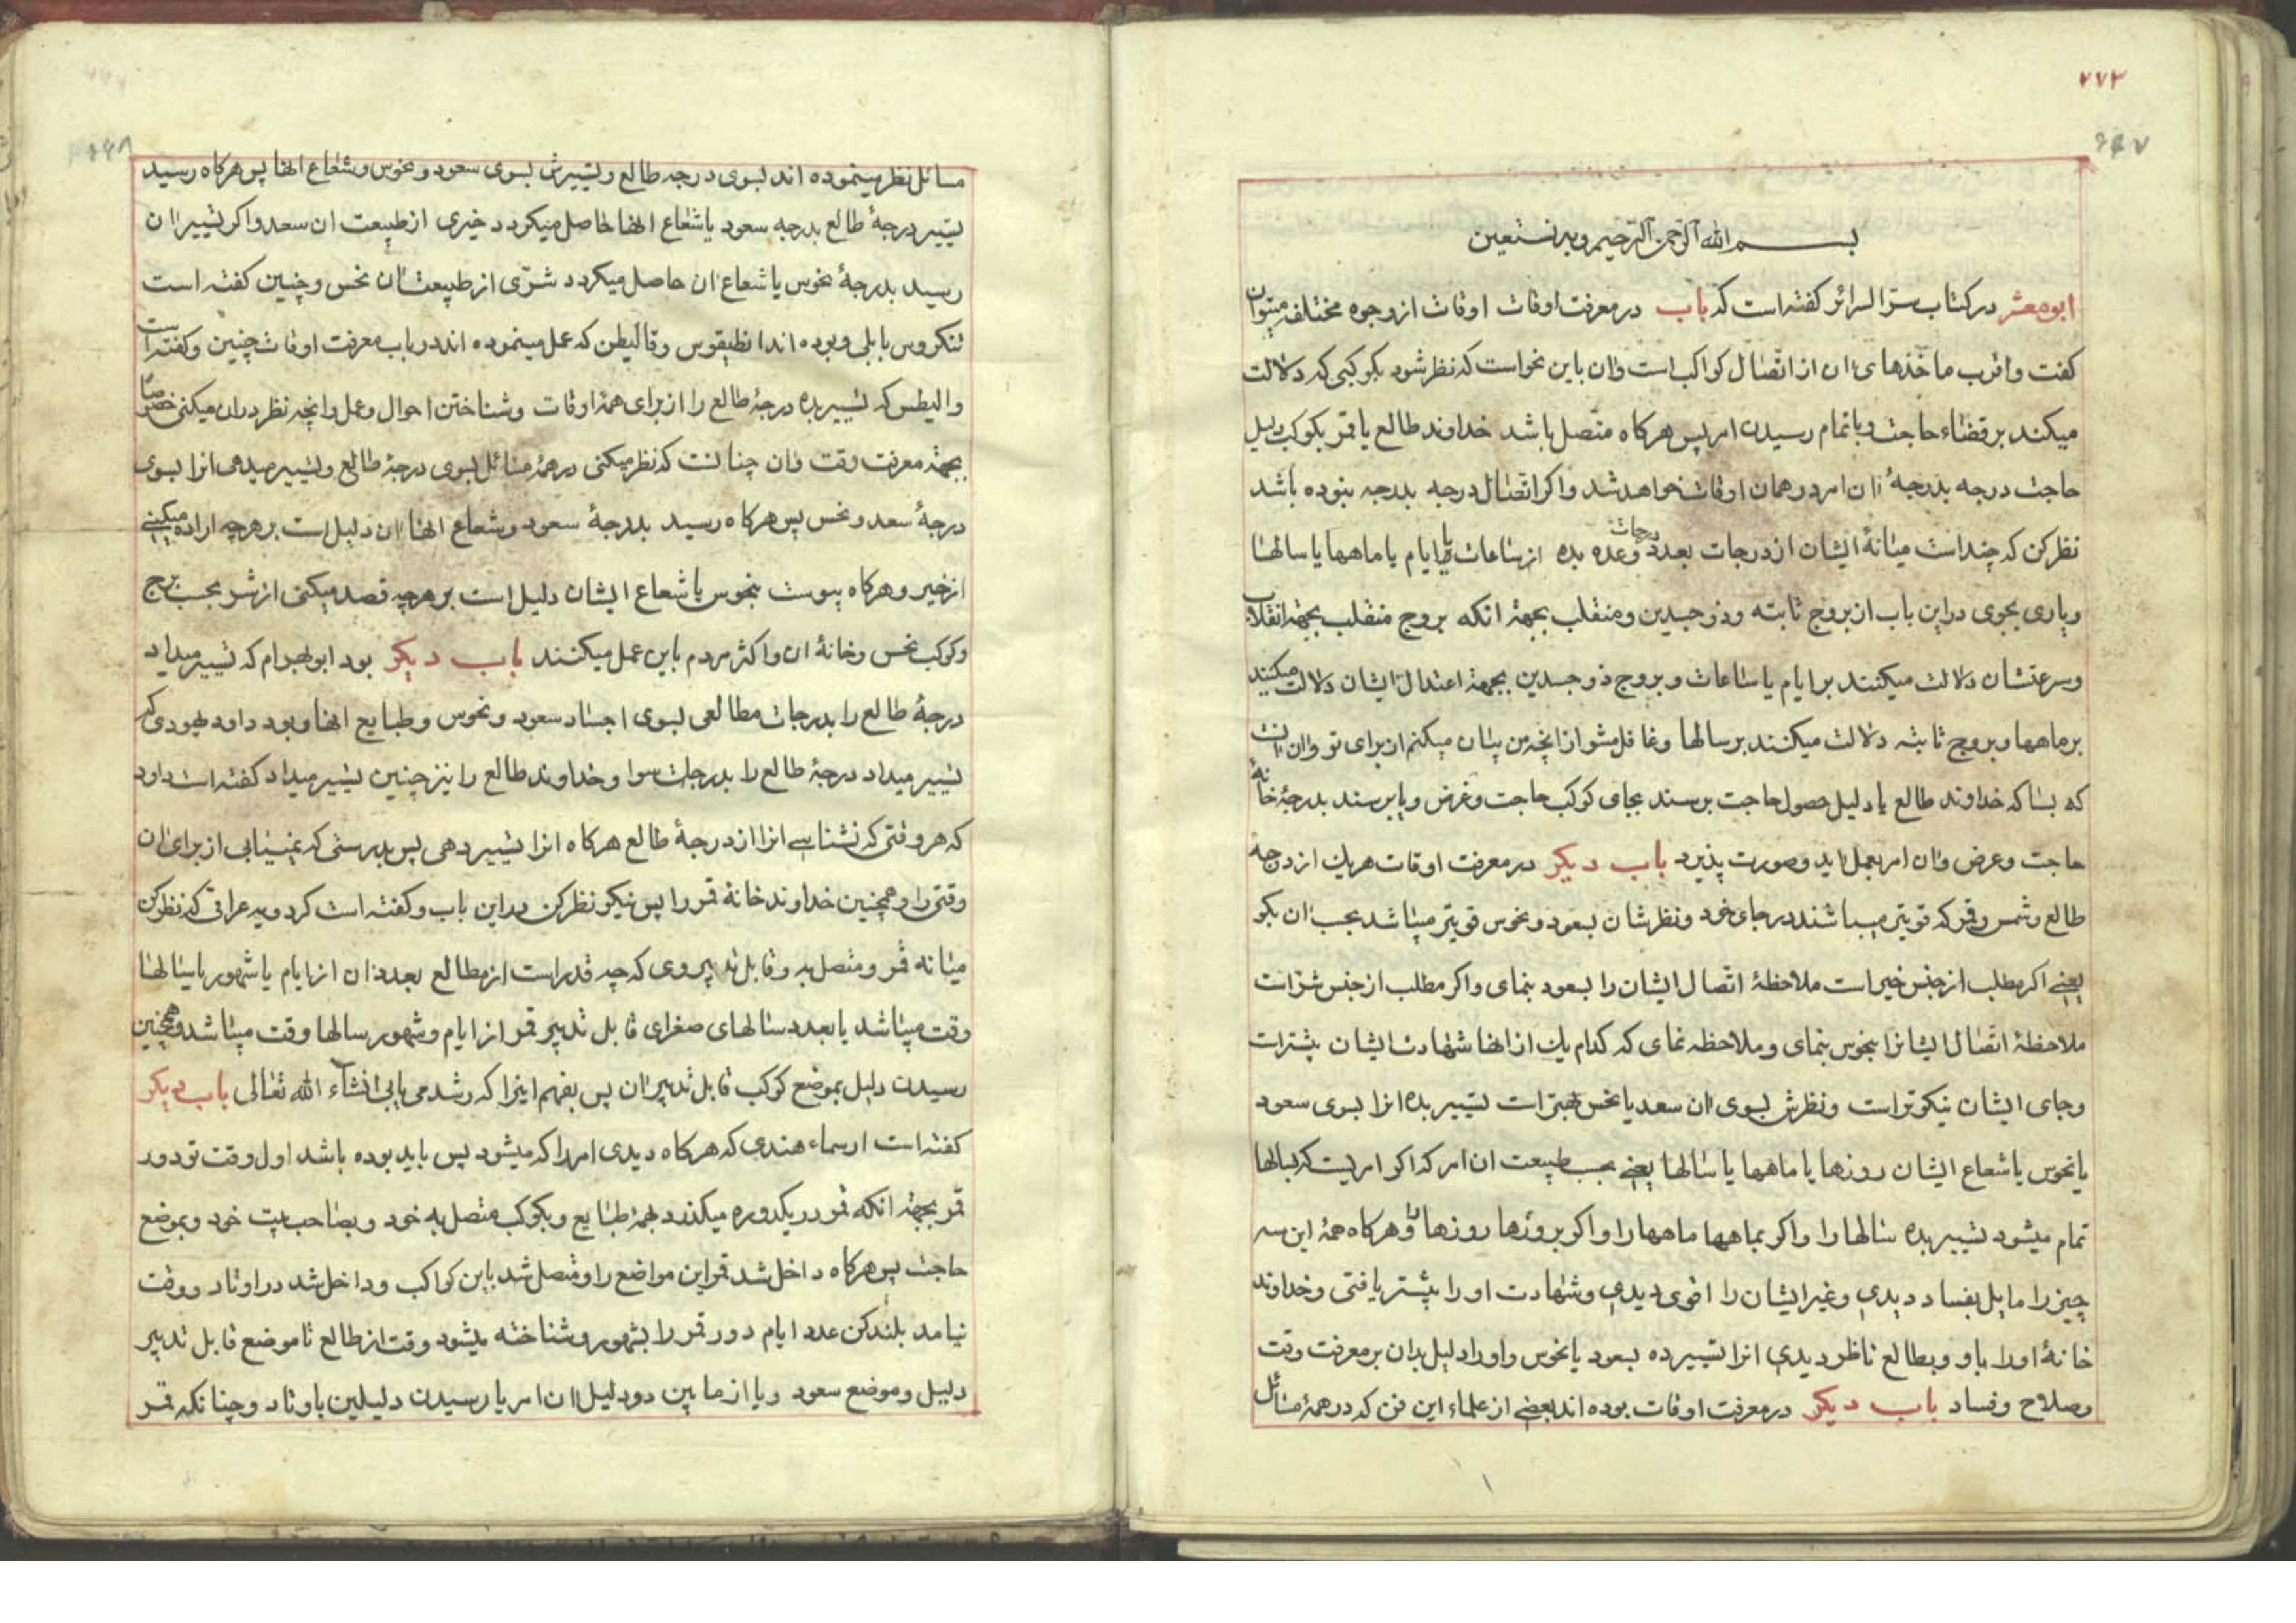 ۷۷۳
۶۴۷
بسم الله الرحمن الرحیم وبه نستعین
ابومعشر در کتاب سرّ السرائر کفته است که باب در معرفت اوقات اوقات از وجوه مختلفه میتوان
کفت واقرب ماخذهای ان از اتصال کواکب است وان باین نحو است که نظر شود بکوکبی که دلالت
میکند بر قضاء حاجت وبا تمام رسیدن امر پس هرکاه متصل باشد خداوند طالع یا قمر بکوکب دلیل
حاجت درجه بدرجهٔ ان ان امر در همان اوقات خواهد شد واکر اتصال درجه بدرجه نبوده باشد
نظر کن که چند است میانهٔ ایشان از درجات بعدد درجات وعده بده از ساعات یا ایام یا ماهها یا سالها
ویاری بجوی در این باب از بروج ثابته وذو جسدین ومنقلب بجهة انکه بروج منقلب بجهة انقلاب
وسرعتشان دلالت میکنند بر ایام یا ساعات و بروج ذو جسدین بجهة اعتدال ایشان دلالت میکنند
بر ماهها وبروج ثابته دلالت میکنند بر سالها وغافل مشو از انچه من بیان میکنم از برای تو وان انست
که بسا که خداوند طالع یا دلیل حصول حاجت برسند بجای کوکب حاجت وغرض ویا برسند بدرجهٔ خانه
حاجت وغرض وان امر بعمل اید وصورت پذیرد باب دیکر در معرفت اوقات هریک از درجه
طالع وشمس وقمر که قویتر میباشند در جای خود ونظرشان بسعود ونحوس قویتر میباشد بحسب ان بکو
یعنی اکر مطلب از جنس خیر است ملاحظهٔ اتصال ایشان را بسعود بنمای واکر مطلب از جنس شرّ است
ملاحظهٔ اتصال ایشانرا بنحوس بنمای وملاحظه نمای که کدام یک از انها شهادت ایشان بیشتر است
وجای ایشان نیکوتر است ونظرش بسوی ان سعد یا نحس بهتر است تسییر بده انرا بسوی سعود
یا نحوس یا شعاع ایشان روزها یا ماهها یا سالها یعنی بحسب طبیعت ان امر که اکر امریست که بسالها
تمام میشود تسییر بده سالها را واکر بماهها ماهها را واکر بروزها روزها را وهرکاه همهٔ این سه
چیز را مایل بفساد دیدی وغیر ایشان را اقوی دیدی وشهادت او را بیشتر یافتی وخداوند
خانهٔ او را باو وبطالع ناظر دیدی انرا تسییر ده بسعود یا نحوس واورا دلیل بدان بر معرفت وقت
وصلاح وفساد باب دیکر در معرفت اوقات بوده اند بعضی از علماء این فن که در همهٔ مسائل
مسائل نظر مینموده اند بسوی درجه طالع وتسییرش بسوی سعود ونحوس وشعاع انها پس هرکاه رسید
تسییر درجهٔ طالع بدرجه سعود یا شعاع انها حاصل میکردد خیری از طبیعت ان سعد واکر تسییر ان
رسید بدرجهٔ نحوس یا شعاع ان حاصل میکردد شرّی از طبیعت ان نحس وچنین کفته است
تنکروس بابلی وبوده اند انطیقوس وقالیطن که عمل مینموده اند در باب معرفت اوقات چنین وکفته است
والیطس که تسییر بده درجهٔ طالع را از برای همهٔ اوقات وشناختن احوال وعمل وانچه نظر در ان میکنی خصوصا
بجهة معرفت وقت وان چنانست که نظر میکنی در همهٔ مسائل بسوی درجهٔ طالع وتسییر میدهی انرا بسوی
درجهٔ سعد ونحس پس هرکاه رسید بدرجهٔ سعود وشعاع انها ان دلیل است بر هرچه اراده میکنی
از خیر وهرکاه پیوست بنحوس یا شعاع ایشان دلیل است بر هرچه قصد میکنی از شر بحسب برج
وکوکب نحس وخانهٔ ان واکثر مردم باین عمل میکنند باب دیکر بود ابو بهرام که تسییر میداد
درجهٔ طالع را بدرجات مطالعی بسوی اجساد سعود ونحوس وطبایع انها وبود داود یهودی که
تسییر میداد درجهٔ طالع را بدرجات سوا وخداوند طالع را نیز چنین تسییر میداد کفته است داود
که هر وقتی که نشناسی انرا از درجهٔ طالع هرکاه انرا تسییر دهی پس بدرستی که نمییابی از برای ان
وقتی را وهمچنین خداوند خانهٔ قمر را پس نیکو نظر کن در این باب وکفته است کردویه عراقی که نظر کن
میانه قمر ومتصل به وقابل تدبیر وی که چه قدر است از مطالع بعدد ان از ایام یا شهور یا سالها
وقت میباشد یا بعدد سالهای صغرای قابل تدبیر قمر از ایام وشهور سالها وقت میباشد وهمچنین
رسیدن دلیل بموضع کوکب قابل تدبیر ان پس بفهم اینرا که رشد می یابی انشاء الله تعالی باب دیکر
کفته است ارسماء هندی که هرکاه دیدی امر را که میشود پس باید بوده باشد اول وقت تو دور
قمر بجهة انکه قمر در یکدوره میکذرد بهمهٔ طبایع وبکوکب متصل به خود وبصاحب بیت خود وبموضع
حاجت پس هرکاه داخل شد قمر این مواضع را ومتصل شد باین کواکب وداخل شد در اوتاد ووقت
نیامد بلند کن عدد ایام دور قمر را بشهور وشناخته میشود وقت از طالع تا موضع قابل تدبیر
دلیل وموضع سعود ویا از ما بین دو دلیل ان امر یا رسیدن دلیلین باوتاد وچنانکه قمر